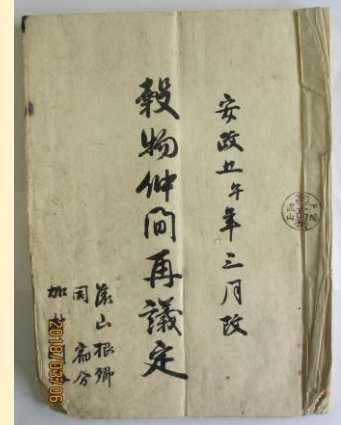 安政五午年三月改
穀物仲間再議定
流山根郷
同 宿分
加村
下総
流山
2018/03/06